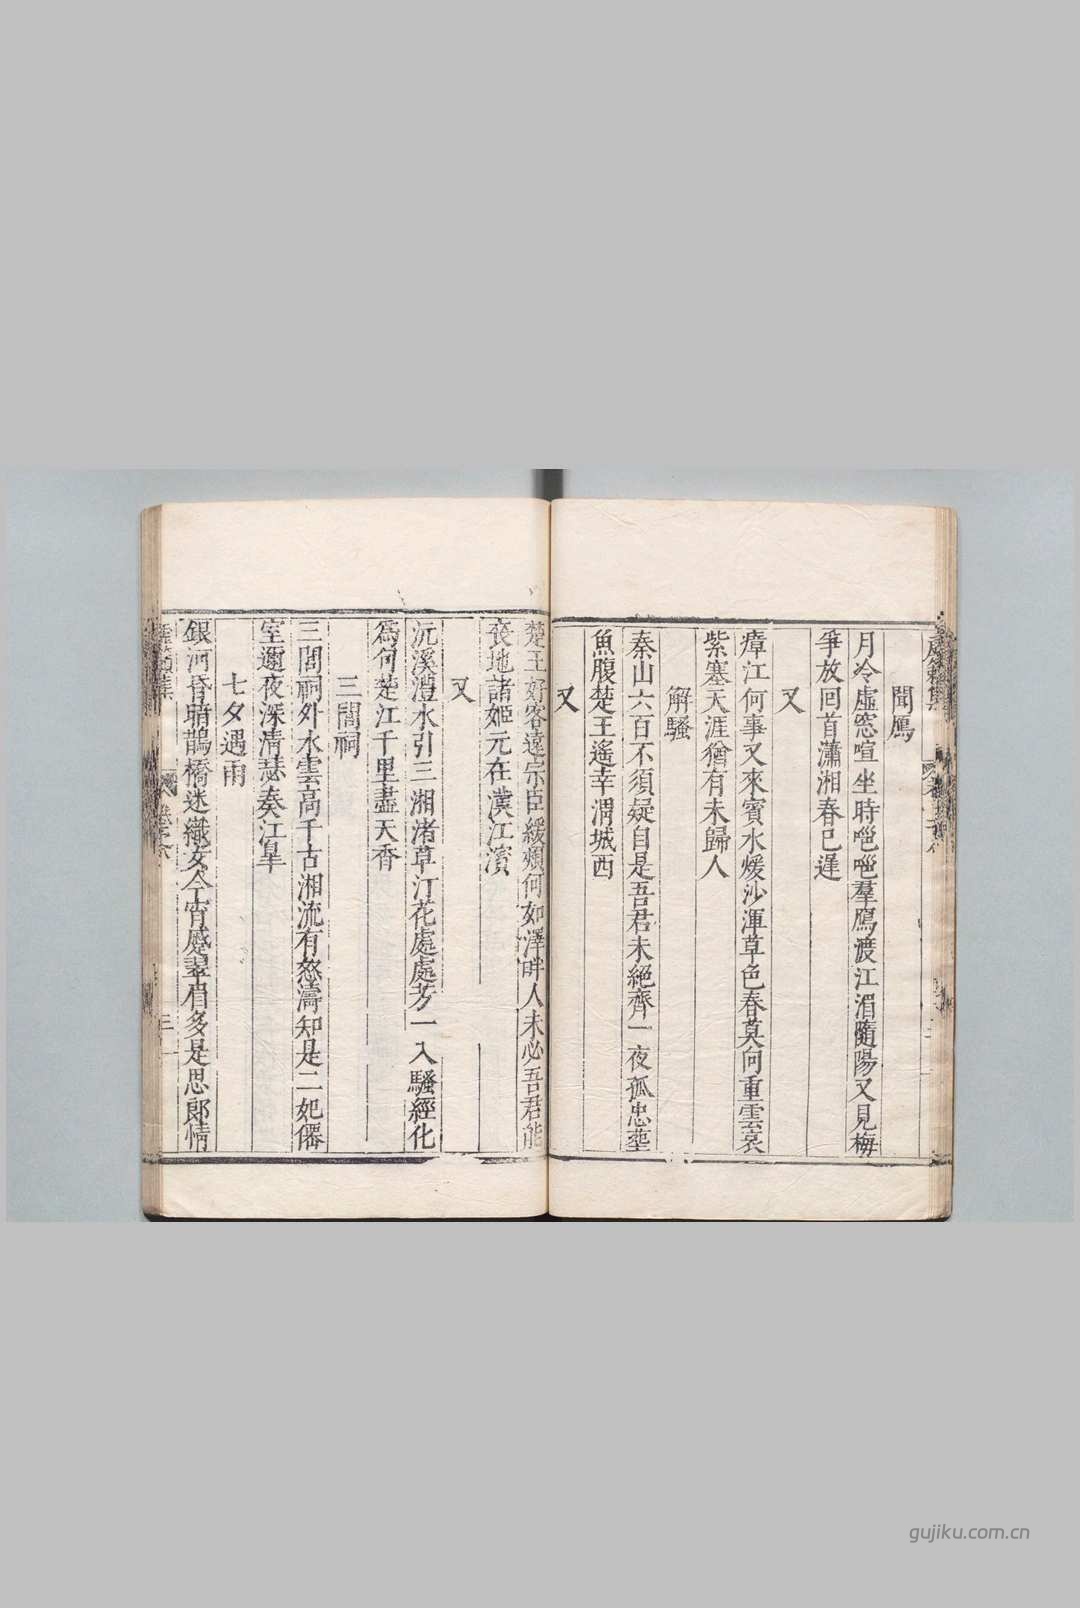 聞鴈
月冷虛窓喧坐時嗈嗈羣鴈渡江湄隨陽又見梅
爭放回首瀟湘春已遲
又
瘴江何事又來賓水煖沙渾草色春莫向重雲哀
紫塞天涯猶有未歸人
解騷
秦山六百不須疑自是吾君未絕齊一夜孤忠塟
魚腹楚王遙幸渭城西
又
楚王好客遠宗臣緩頰何如澤畔人未必吾君能
喪地諸姬元在漢江濱
又
沅溪澧水引三湘渚草汀花處處芳一入騷經化
爲何楚江千里盡天香
三閭祠
三閭祠外水雲高千古湘流有怒濤知是二妃僊
室邇夜深清瑟奏江皐
七夕遇雨
銀河昏暗鵲橋迷織女今宵蹙翠眉多是思郎情
gujiku.com.cn